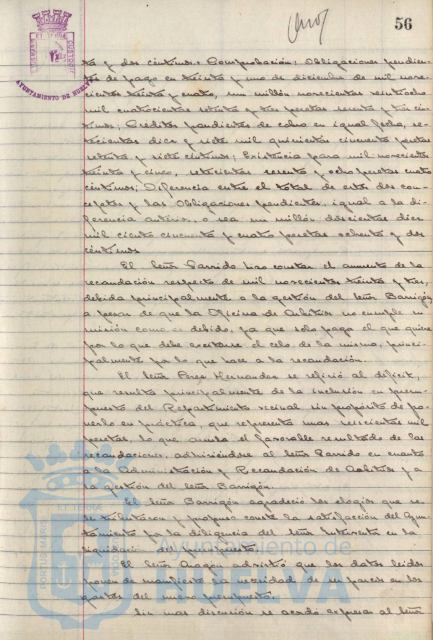 56
ta y dos céntimos. Comprobación: Obligaciones pendien-
tes de pago en treinta y uno de diciembre de mil nove-
cientos treinta y cuatro, un millón novecientos veintiocho
mil cuatrocientas setenta y tres pesetas
timos; Créditos pendientes de cobro en igual fecha, se-
tecientos diez y siete mil quinientas cincuenta pesetas
setenta y siete céntimos; Existencia para mil novecientos
treinta y cinco, setecientas sesenta y ocho pesetas cuatro
céntimos; Diferencia entre el total de estos dos con-
ceptos y las Obligaciones pendientes, igual a la di-
ferencia anterior, o sea un millón doscientas diez
mil ciento cincuenta y cuatro pesetas ochenta y dos
céntimos
El señor Garrido hizo constar el aumento de la
recaudación respecto de mil novecientos treinta y tres,
debida principalmente a la gestión del señor Barrigón
a pesar de que la Oficina de Arbitrios no cumple su
misión como es debido, ya que solo paga el que quiere
por lo que debe excitarse el celo de la misma, princi-
palmente por lo que hace a la recaudación.
El señor Pérez Hernández se refirió al déficit,
que resulta principalmente de la inclusión en presu-
puesto del Repartimiento vecinal, sin propósito de po-
nerlo en práctica, que representa mas seiscientas mil
pesetas, lo que anula el favorable resultado de las
recaudaciones, adhiriéndose al señor Garrido en cuanto
a la Administración y Recaudación de Arbitrios y a
la gestión del señor Barrigón.
El señor Barrigón agradeció los elogios que se
le tributaron y propuso conste la satisfacción del Ayun-
tamiento por la diligencia del señor Interventor en la
liquidación del presupuesto.
El señor Aragón advirtió que los datos leidos
ponen de manifiesto la necesidad de ser parcos en los
gastos del nuevo presupuesto.
Sin mas discusión se acordó expresar al señor
AYUNTAMIENTO DE HUELVA
Ayuntamiento de
HUELVA